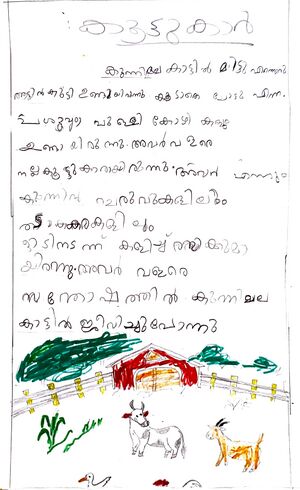 കൂട്ടുകാർ
കുന്നിമല കാട്ടിൽ മിട്ടു എന്ന
ആട്ടിൻ കുട്ടി ഉണ്ടായിരുന്നു കൂടാതെ പോട്ടു എന്ന
പശുവും പുള്ളി കോഴി കളും
ഉണ്ടായിരുന്നു. അവർ വളരെ
നല്ല കൂട്ടുകാരായിരുന്നു. അവർ എന്നും
കുന്നിൻ ചെരുവുകളിലും
തടാകകരകളിലും
ഓടിനടന്ന് കളിച്ച് രസിക്കുമാ
യിരുന്നു. അവർ വളരെ
സന്തോഷത്തിൽ കുന്നിമല
കാട്ടിൽ ജീവിച്ചുപോന്നു